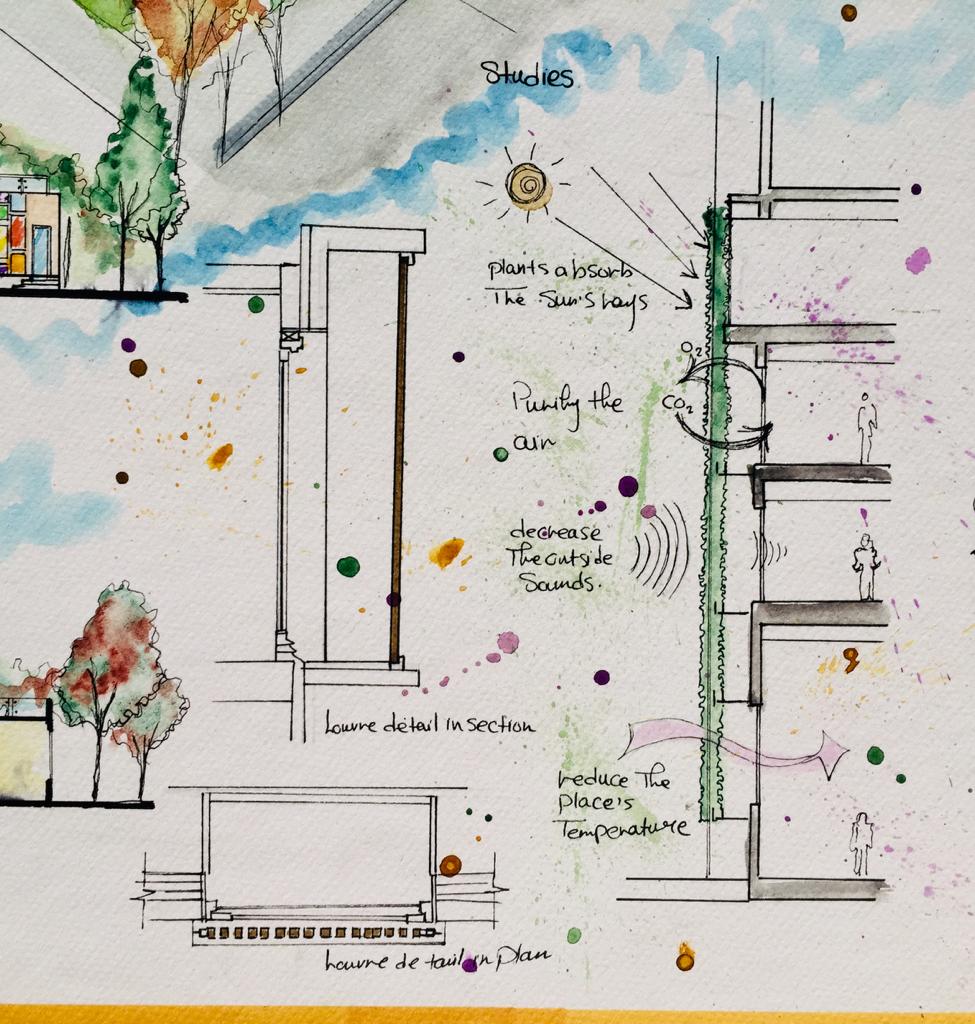 Studies
plants absorb
The Sun's rays
O2
CO2
Purify the
air
decrease
The outside
Sounds.
Louvre détail in section
reduce The
place's
Temperature
Louvre detail in plan